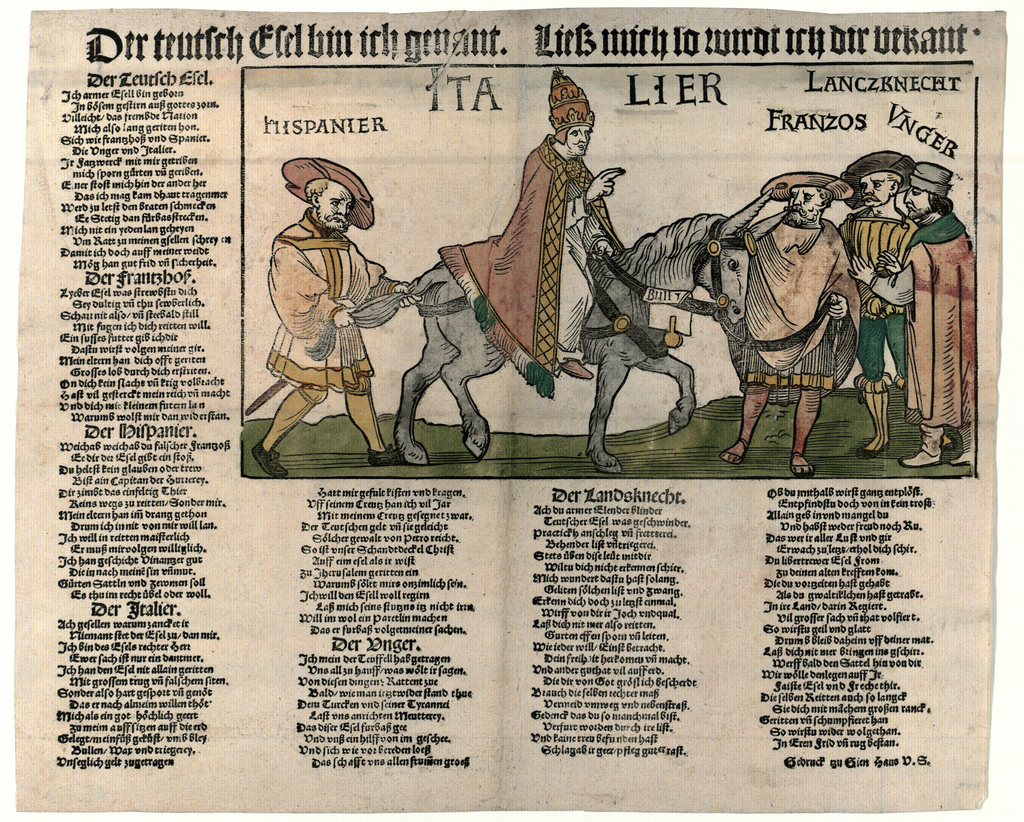 Der teutsch Esel bin ich genant. Ließ mich so wirdt ich dir bekant.
HISPANIER
ITALIER
LANCZKNECHT
FRANZOS
VNGER
Bull
Der Teutsch Esel.
Ich armer Esell bin geborn
In bösem gestirn auß gottes zorn.
Villeicht/ das frembde Nation
Mich also lang geriten hon.
Sich wie frantzhoß vnd Spanier.
Die Vnger vnd Italier.
Ir Fatzwerck mit mir getriben
mich sporn gürten vñ geriben.
Einer stost mich hin der ander her
Das ich mag kam dhaut tragenmer
Werd zu letst den braten schmecken
Er Stetig dan fürbas strecken.
Mich nit ein yeden lan geheyen
Vm Ratt zu meinen gsellen schreyen
Damit ich doch auff meiner weidt
Mög han gut frid vñ sicherheit.
Der frantzhoß.
Lyeber Esel was strewbstu dich
Sey dultig vñ thu sewberlich.
Schau nit also/ vñ stee bald still
Mit fugen ich dich reitten will.
Ein susses futter gib ich dir
Dastu wirst volgen meiner gir.
Mein eltern han dich offt geriten
Grosses lob durch dich erstriten.
On dich kein slacht vñ krig volbracht
Hast vil gesterckt mein reich vñ macht
Vnd dich mit kleinem futern lan
Warumb wolst mir dan widerstan.
Der Hispanier.
Weichab weichab du falscher Frantzoß
Ee dir der Esel gibt ein stoß.
Du helest kein glauben oder trew
Bist ain Capitan der Hutterey.
Dir zimbt das einfeltig Thier
Keins wegs zu reitten/ Sonder mir.
Mein eltern han im drang gethon
Drum ich in nit von mir will lan.
Ich will in reitten maisterlich
Er muß mir volgen williglich.
Ich han geschicht Vinantzer gut
Die in nach meinem sin vñ mut.
Gürten Sattln vnd zewmen soll
Es thu im recht übel oder woll.
Der Italier.
Ach gesellen warum zancket ir
Niemant stet der Esel zu/ dan mir.
Ich bin des Esels rechter Herr
Ewer sach ist nur ein dantmer.
Ich han den Esel nit allain geritten
Mit grossem trug vñ falschem siten.
Sonder also hart gespott vñ genöt
Das er nach almeim willen thöt
Mich als ein got höchlich geert
zu meim auffsitzen auff die erd
Gelegt/ mein füß geküst/ vmb bley
Bullen/ Wax vnd triegerey.
Vnseglich gelt zugetragen
Hatt mir gefult kisten vnd kragen.
Vff seinem Creutz han ich vil Jar
Mit meinem Creutz gesegnet zwar.
Der Teutschen gelt vñ sie geleicht
Sölcher gewalt von Petro reicht.
So ist vnser Schandtdeckel Christ
Auff ein esel als ir wist
Zu Jherusalem geritten ein
Warumb sölt mirs onzimlich sein.
Ich will den Esell woll regirn
Laß mich seine stutzns itz nicht irrn
Will im wol ein Paretlin machen
Das er furbaß volget meiner sachen.
Der Vnger.
Ich mein der Teuffell hab getragen
Vns all zu hauff/ was wölt ir sagen.
Von disen dingen: Rattent zue
Bald/ wie man itzt widerstand thue
Dem Turcken vnd seiner Tyrannei
Last vns anrichten Meutterey.
Das diser Esel furbaß gee
Vnd vnß ein hilff von im geschee.
Vnd sich wie vor bereden loeß
Das schafft vns allen frumen groß
Der Landsknecht.
Ach du armer Elender blinder
Teutscher Esel was geschwinder.
Practick/ anschleg vñ fretterei.
Behender list vñ triegerei.
Stets üben dise leüt mit dir
Wiltu dich nicht erkennen schier.
Mich wundert dastu hast solang.
Geliten sölchen list vnd zwang.
Erkenn dich doch zu letzst einmal.
Wirff von dir ir Joch vnd qual.
Laß dich nit mer also reitten.
Gurten essen sporn vñ leiten.
Wie ieder will/ Einst betracht.
Dein freiheit herkomen vñ macht.
Vnd ander guthat vil auff erd.
Die dir von Got gröslich beschert
Brauch die selben rechter maß
Vermeid vmweg vnd nebenstraß.
Gedenck das du so manchmal bist.
Verfurt worden durch ire list.
Vnd kaine trew befunden hast
Schlag ab ir geer/ pfleg guter rast.
Ob du mithalb wirst gantz entplöst.
Entpfindstu doch von in kein trost
Allain geb in vnd mangel du
Vnd habst weder freud noch Ru.
Das wer ir aller Lust vnd gir
Erwach zu letz/ erhol dich schir.
Du libertrewer Esel From
zu deinen alten krefften kom.
Die du vorzeiten hast gehabt
Als du gwaltiklichen hast getrabt.
In ire Land/ darin Regiert.
Vil grosser sach vñ that volfiert.
So wirstu geil vnd glatt
Drumb bleib daheim vff deiner mat.
Laß dich nit mer bringen ins gschirr.
Werff bald den Sattel hin von dir
Wir wölle den legen auff Ir.
Faiste Esel vnd Freche thir.
Die selben Reitten auch so langck
Sie dich mit mächem großen ranck.
Geritten vñ schumpfieret han
So wirstu wider wolgethan.
In Eren Frid vñ rug bestan.
Gedruck zu Sien Hans V. S.